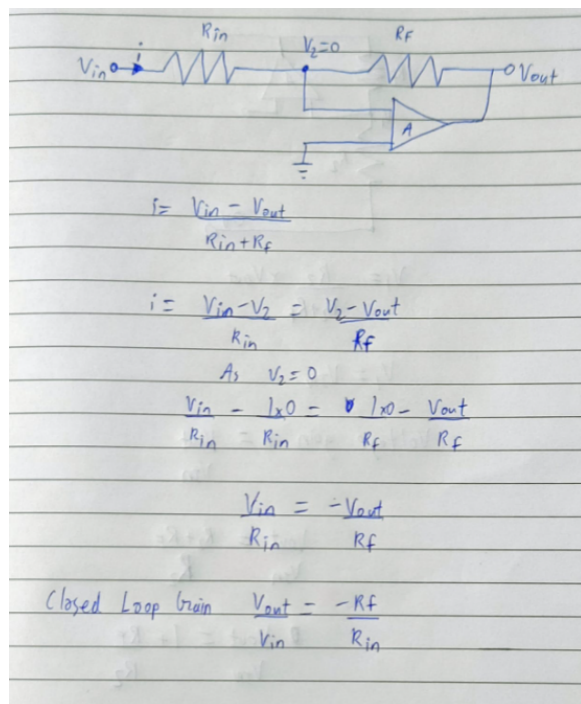 Rin V2=0 RF
Vin i Vout
A
i = Vin - Vout / Rin + Rf
i = Vin - V2 / Rin = V2 - Vout / Rf
As V2 = 0
Vin / Rin - 1x0 / Rin = 1x0 / Rf - Vout / Rf
Vin / Rin = -Vout / Rf
Closed Loop Gain Vout / Vin = -Rf / Rin